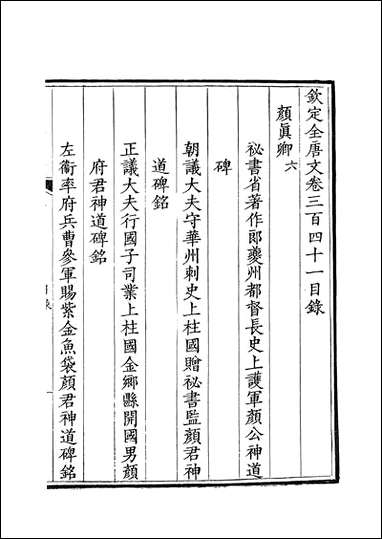 欽定全唐文卷三百四十一目錄
顏眞卿六
祕書省著作郎夔州都督長史上護軍顏公神道
碑
朝議大夫守華州刺史上柱國贈祕書監顏君神
道碑銘
正議大夫行國子司業上柱國金鄉縣開國男顏
府君神道碑銘
左衞率府兵曹參軍賜紫金魚袋顏君神道碑銘